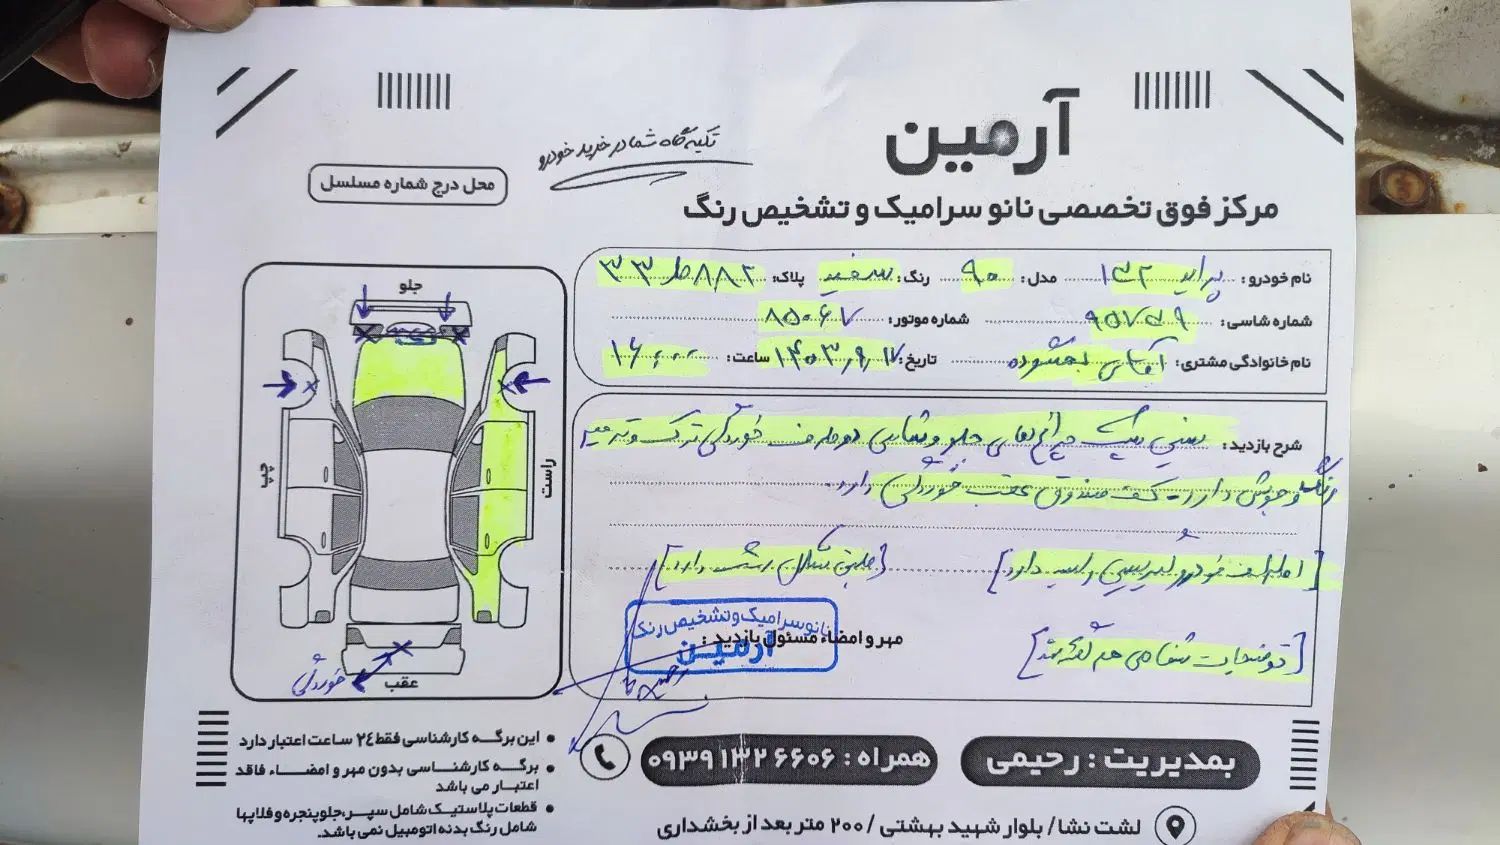 آرمین
تکیه گاه شما در خرید خودرو
مرکز فوق تخصصی نانو سرامیک و تشخیص رنگ
محل درج شماره مسلسل
نام خودرو : پراید ۱۳۲ مدل : ۹۰ رنگ : سفید پلاک : ۸۸۲ ط ۳۳
شماره شاسی : شماره موتور :
نام خانوادگی مشتری : آقای تاریخ : ۱۴۰۳,۹,۱۷ ساعت : ۱۶:۰۰
شرح بازدید : سینی پشت چراغهای جلو و شاسی دو طرف خوردگی ترک و ترمیم
رنگ و جوش دارد - کف صندوق عقب خوردگی دارد
[اطراف خودرو لیسه دارد] [ رنگ دارد]
[توضیحات شفاهی هم گفته شد]
مهر و امضاء مسئول بازدید :
نانو سرامیک و تشخیص رنگ
آرمین
جلو
چپ
راست
عقب
خوردگی
• این برگه کارشناسی فقط ۲۴ ساعت اعتبار دارد
• برگه کارشناسی بدون مهر و امضاء فاقد
اعتبار می باشد
• قطعات پلاستیک شامل سپر،جلو پنجره و فلاپها
شامل رنگ بدنه اتومبیل نمی باشد.
بمدیریت : رحیمی
همراه : ۰۹۳۹ ۱۳۲ ۶۶۰۶
لشت نشا/ بلوار شهید بهشتی /۲۰۰ متر بعد از بخشداری